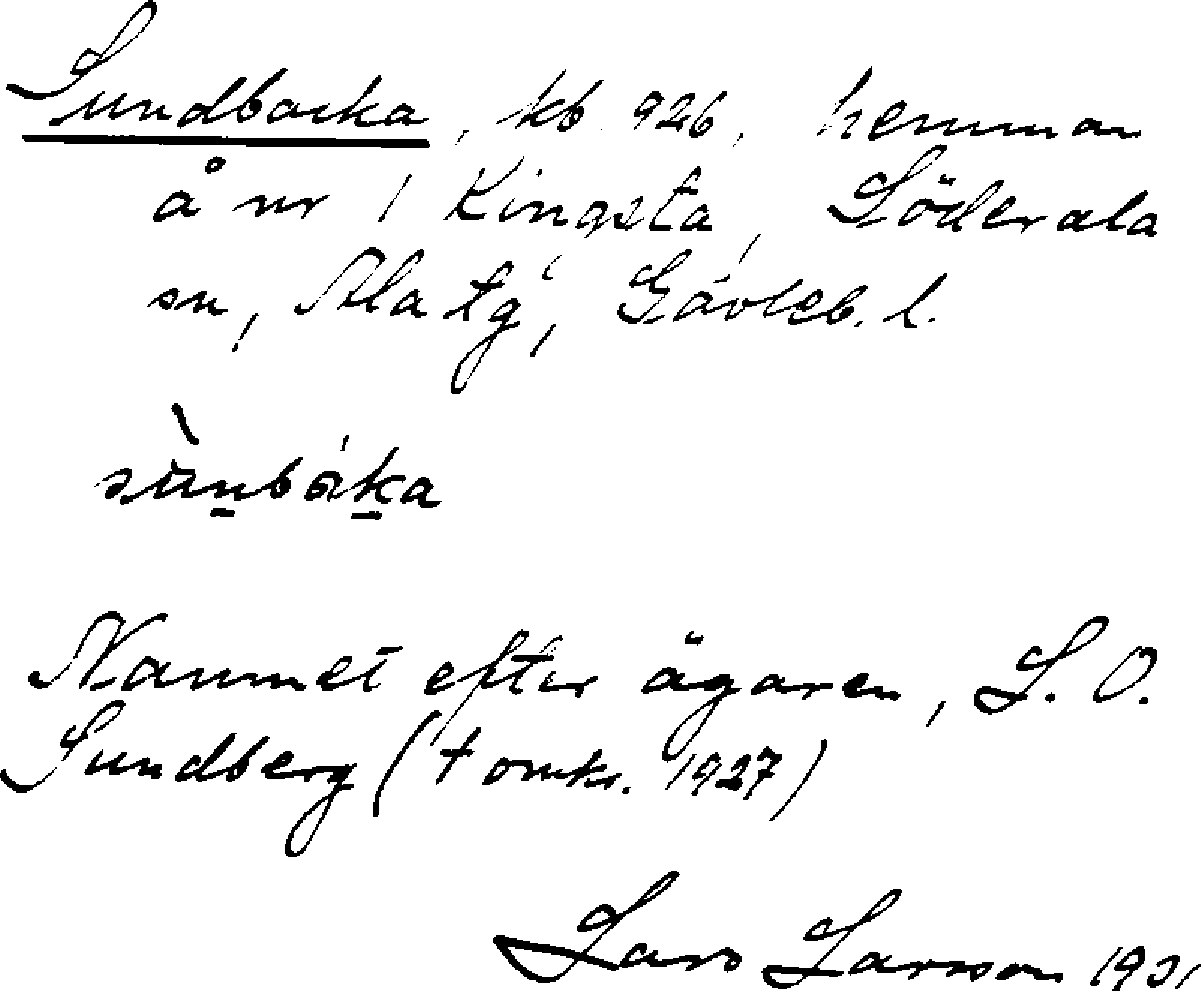 Sundbacka, kb 926, hemman
å nr 1 Kingsta, Söderala
sn, Ala tg, Gävleb. l.
sùnbáka
Namnet efter ägaren, L. O.
Sundberg († omkr. 1927)
Lars Larsson 1931